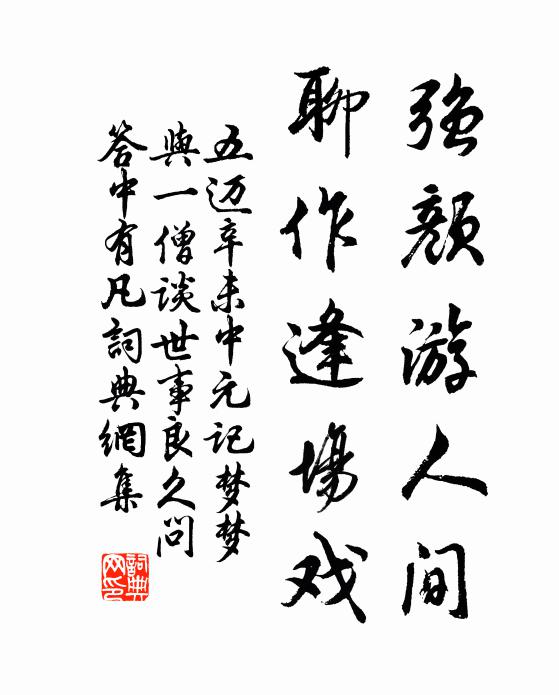 强颜游人间
聊作逢場戏
五迈辛未中元记梦梦
與一僧談世事良久问
答中有凡詞典網集
詞典
网印